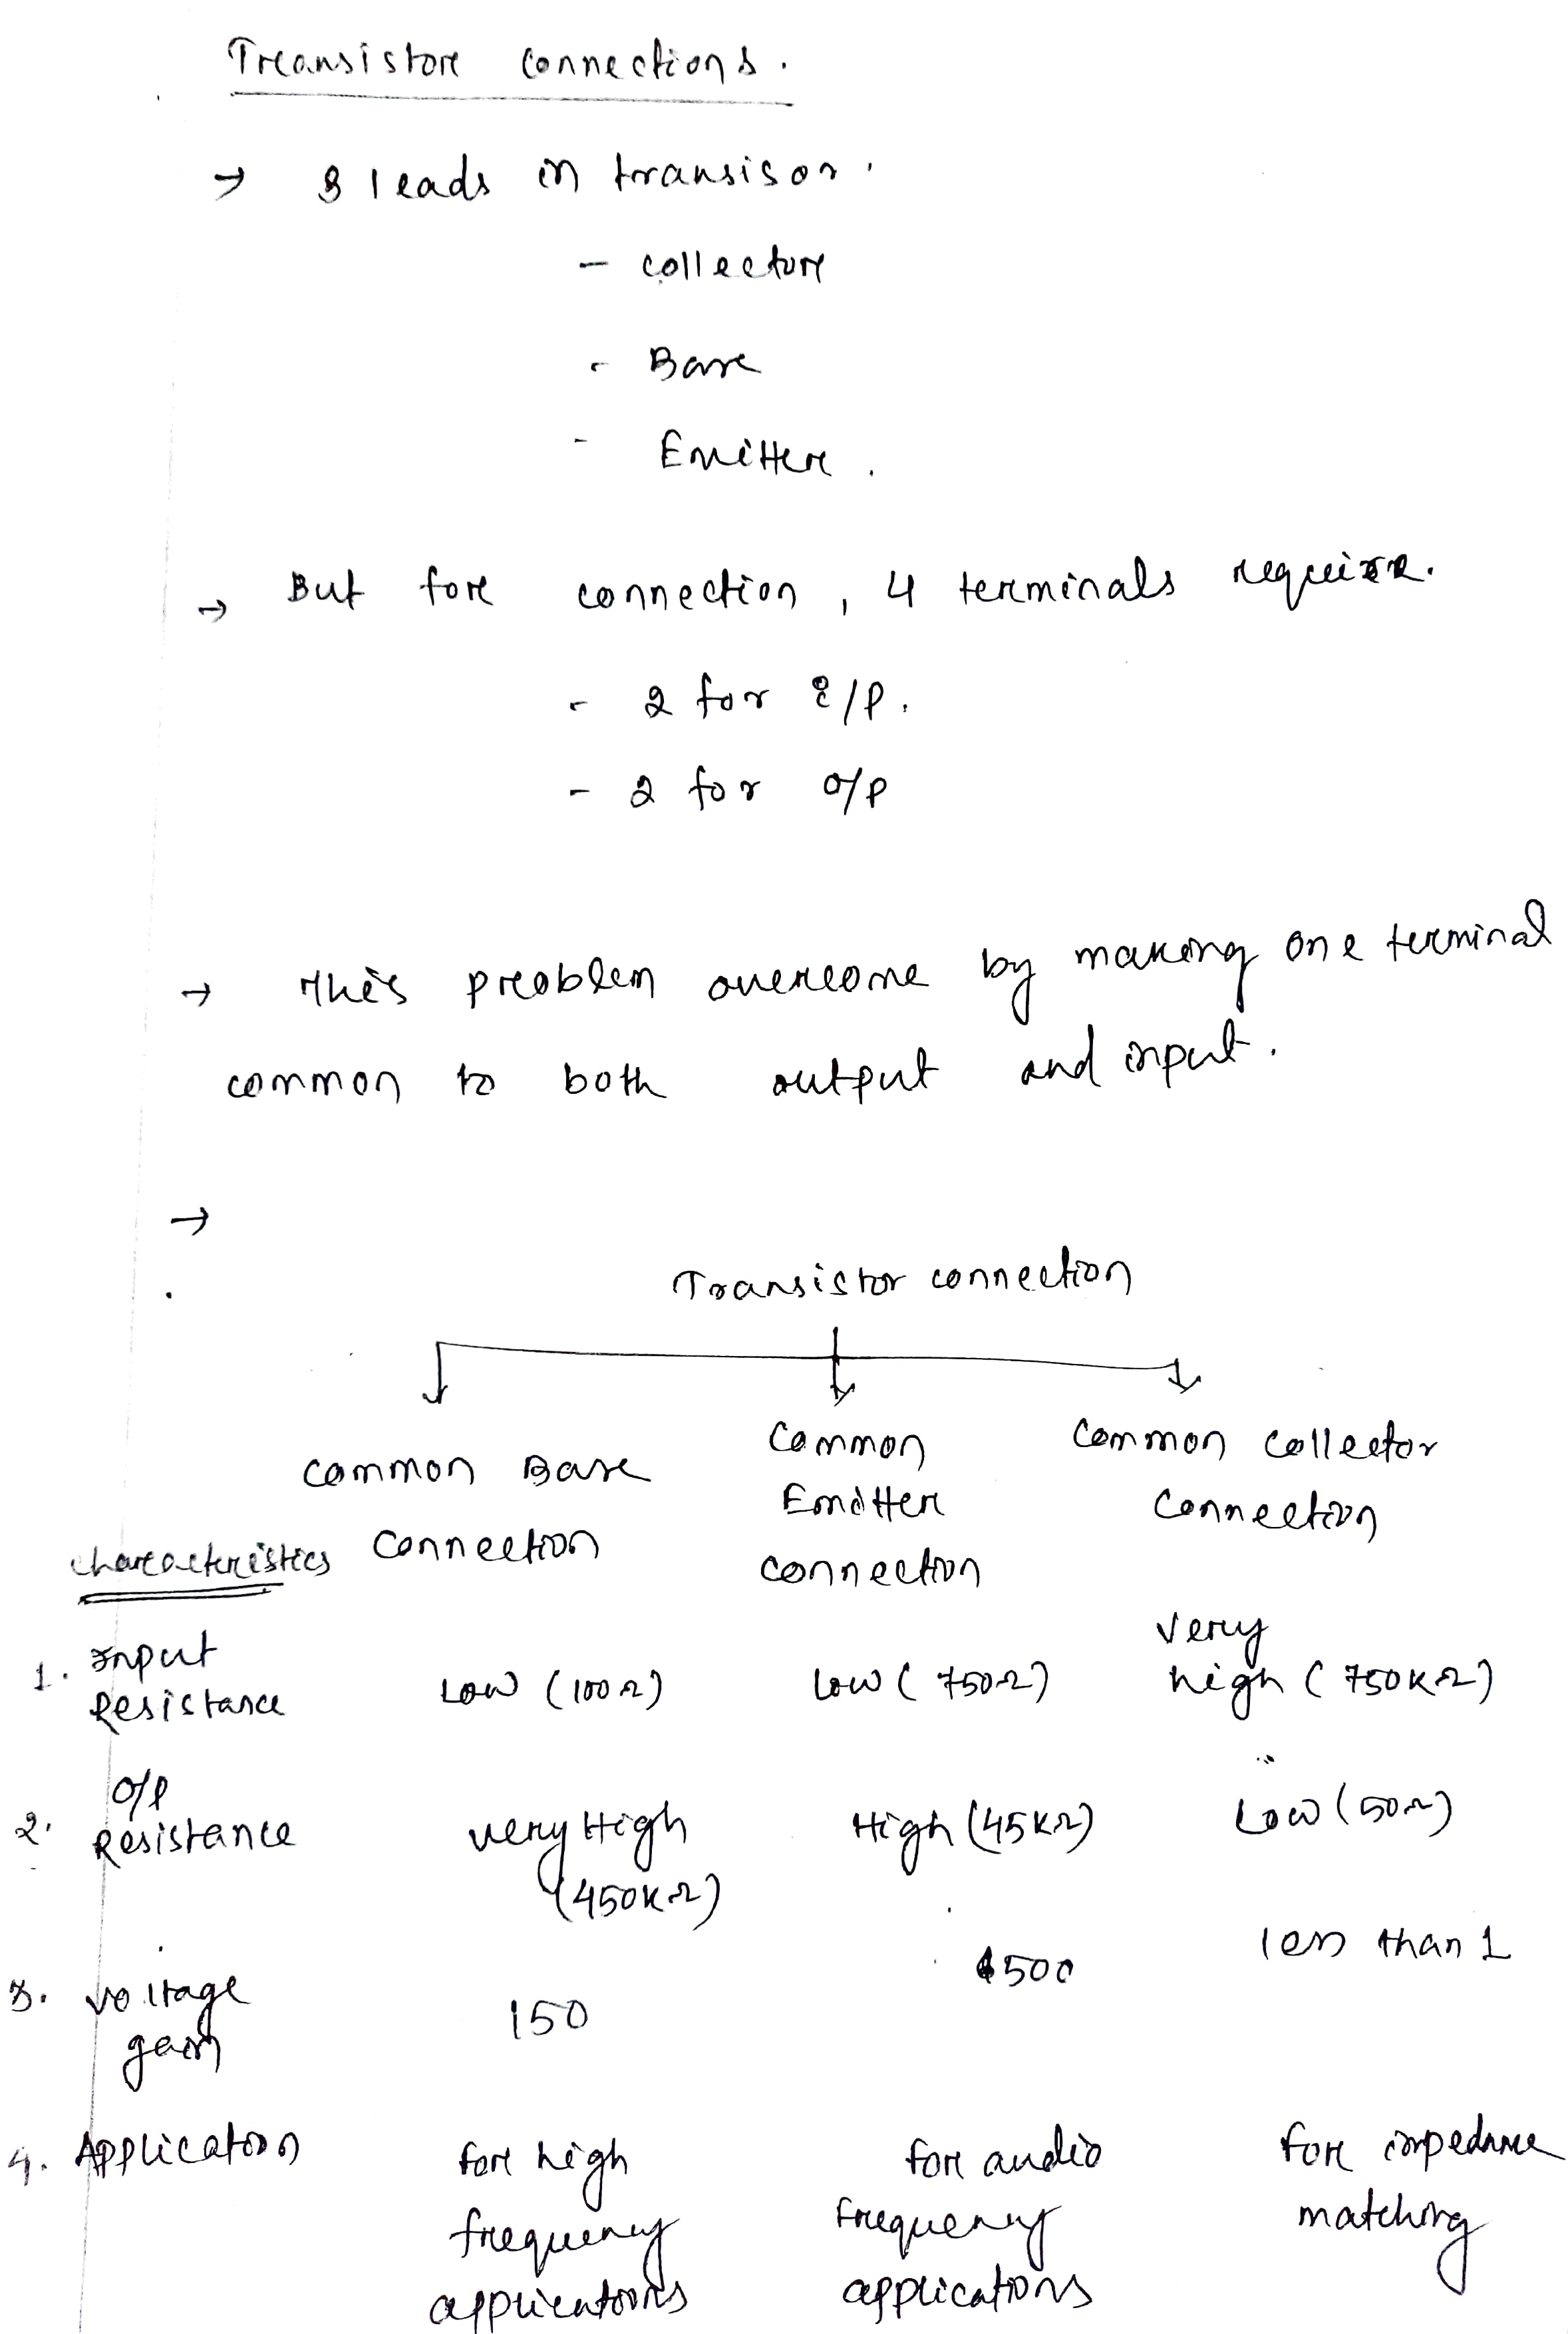 Transistor connections.
→ 3 leads in transisor.
- collector
- Base
- Emitter.
→ But for connection, 4 terminals require.
- 2 for i/p.
- 2 for o/p
→ This problem overcome by making one terminal
common to both output and input.
→
Transistor connection
Common Base Connection
Common Emitter connection
Common collector Connection
characteristics
1. Input Resistance
Low (100Ω)
Low (750Ω)
very high (750KΩ)
2. O/P Resistance
very High (450KΩ)
High (45KΩ)
Low (50Ω)
3. Voltage gain
150
500
less than 1
4. Application
for high frequency applications
for audio frequency applications
for impedance matching